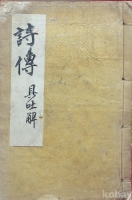 詩傳
具吐解
KOBAY